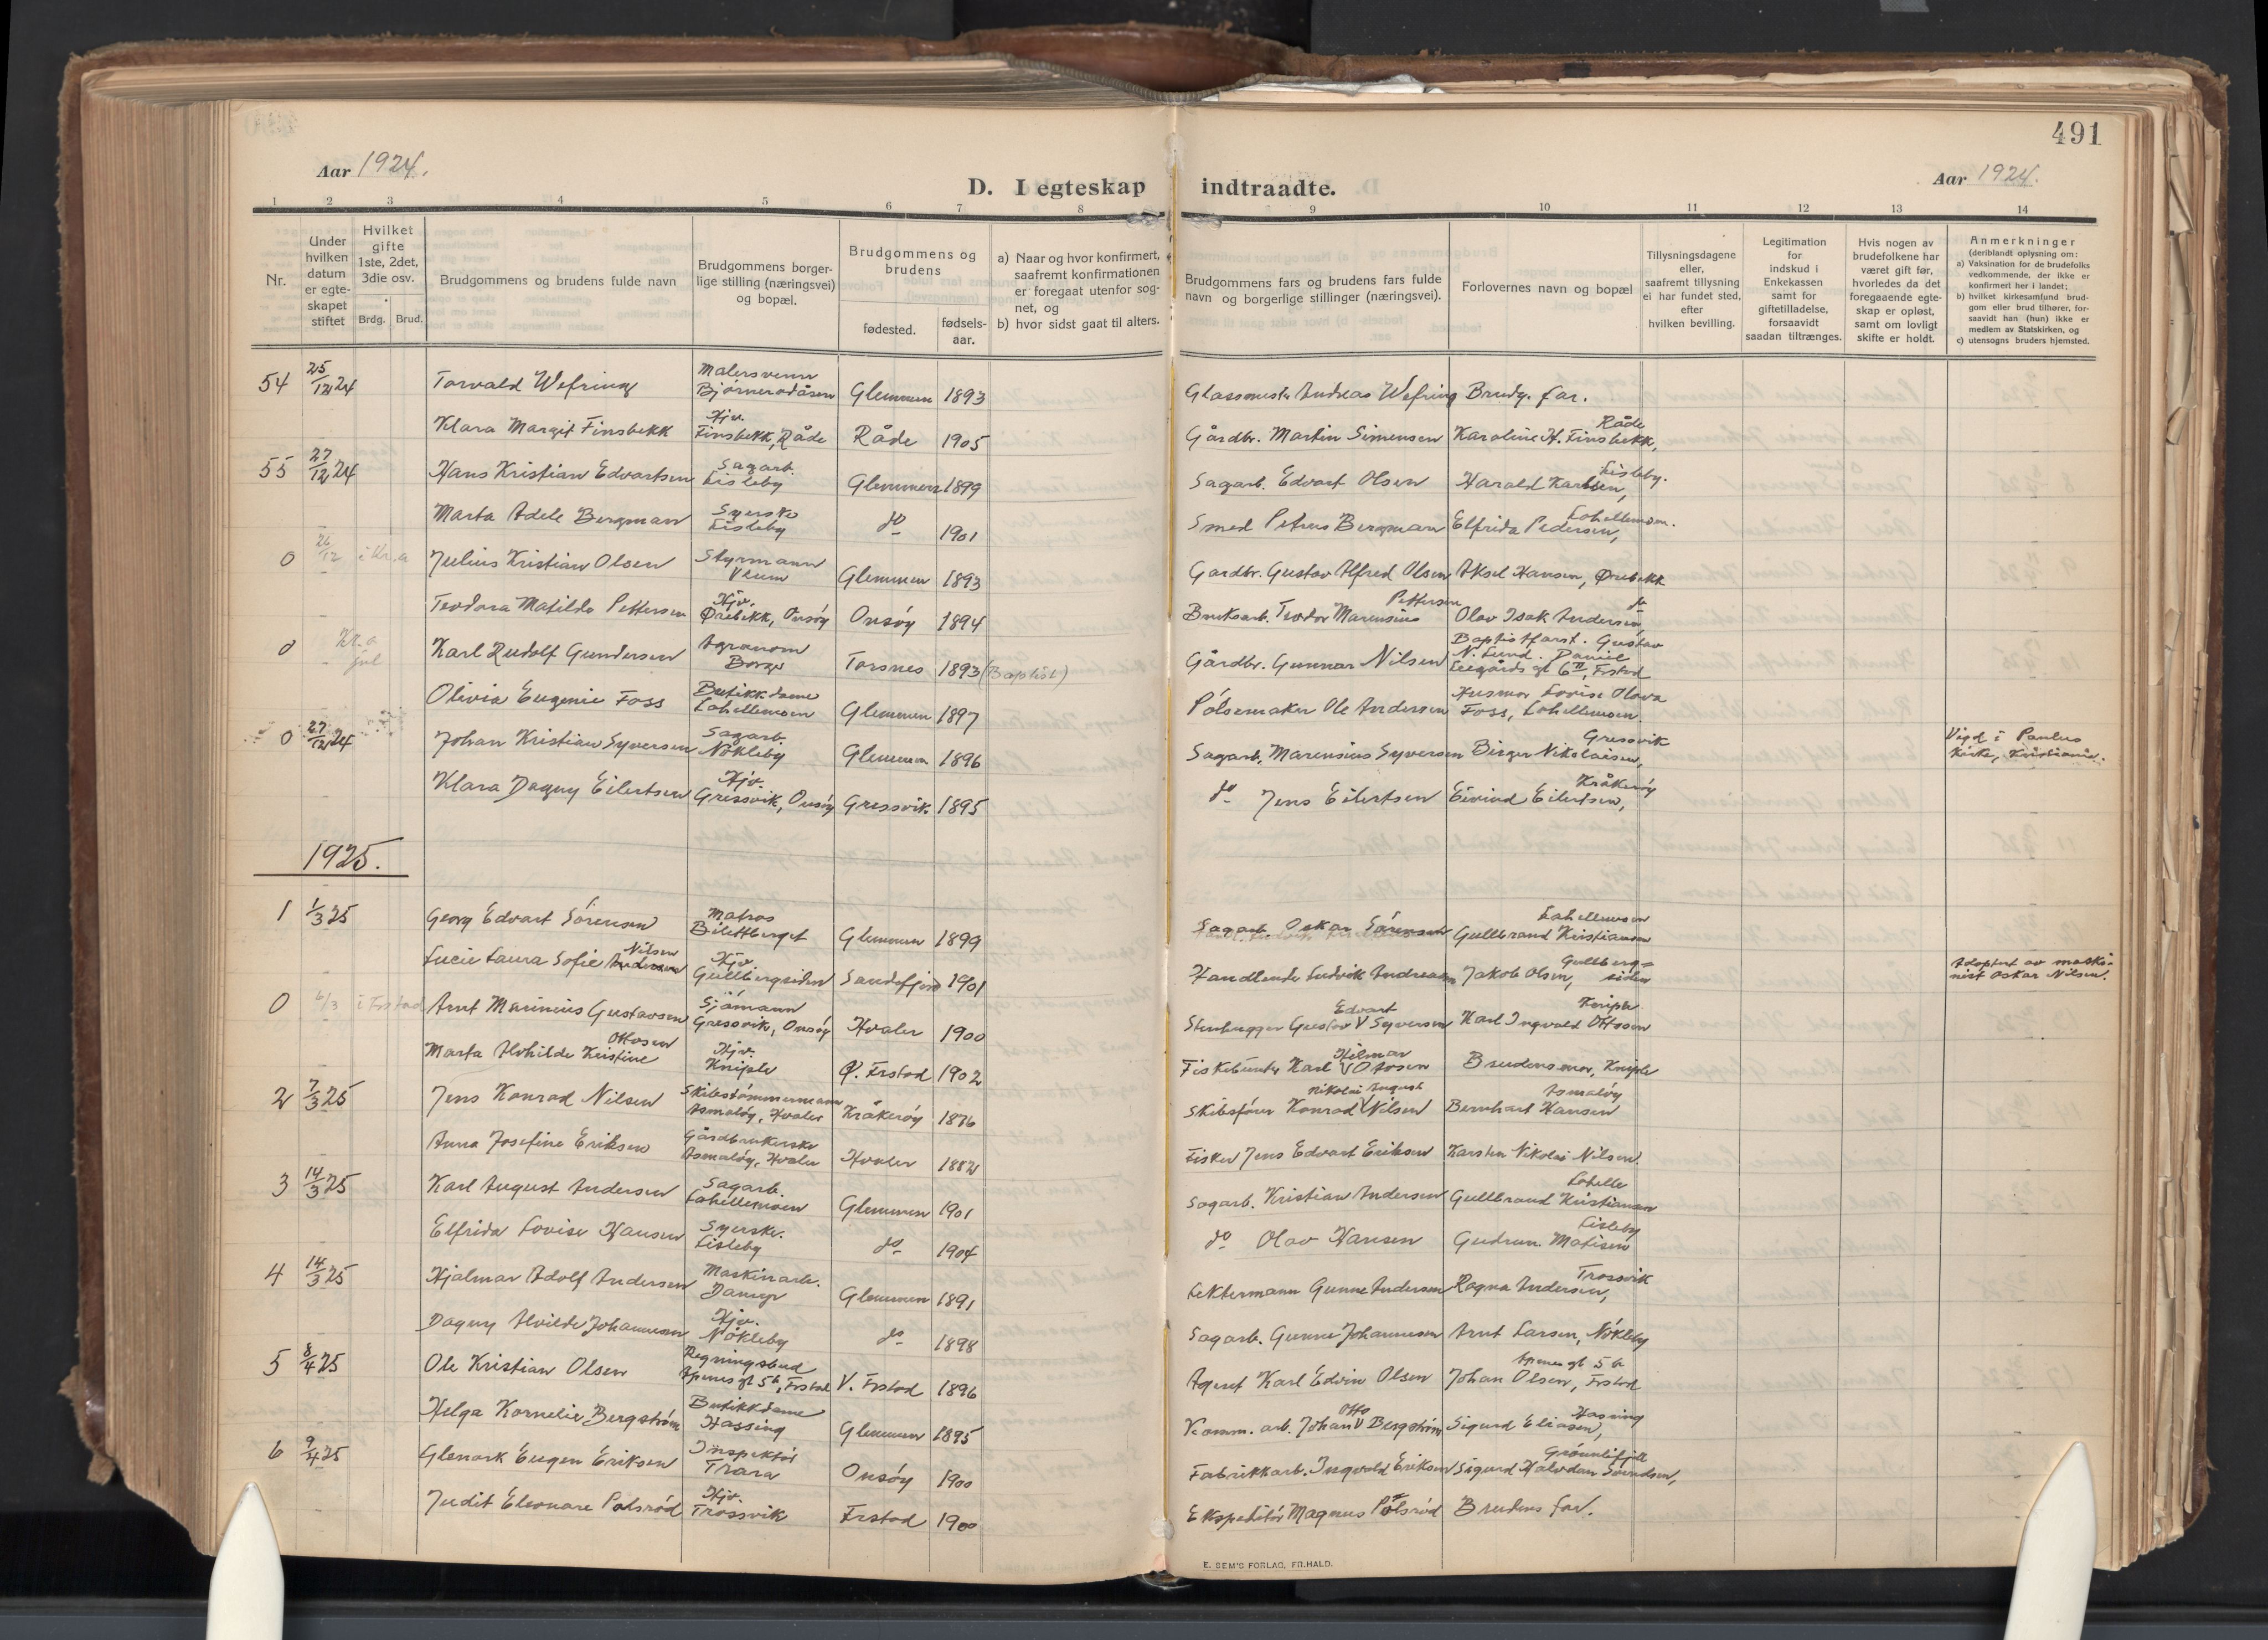 491
Aar 1924.
D. I egteskap indtraadte.
Aar 1924.
1 2 3 4 5 6 7 8 9 10 11 12 13 14
Nr.
Under hvilken datum er egteskapet stiftet
Hvilket gifte 1ste, 2det, 3die osv.
Brdg. Brud.
Brudgommens og brudens fulde navn
Brudgommens borgerlige stilling (næringsvei) og bopæl.
Brudgommens og brudens
fødested.
fødselsaar.
a) Naar og hvor konfirmert, saafremt konfirmationen er foregaat utenfor sognet, og
b) hvor sidst gaat til alters.
Brudgommens fars og brudens fars fulde navn og borgerlige stillinger (næringsvei).
Forlovernes navn og bopæl
Tillysningsdagene eller, saafremt tillysning ei har fundet sted, efter hvilken bevilling.
Legitimation for indskud i Enkekassen samt for giftetilladelse, forsaavidt saadan tiltrænges.
Hvis nogen av brudefolkene har været gift før, hvorledes da det foregaaende egteskap er opløst, samt om lovligt skifte er holdt.
Anmerkninger (deriblandt oplysning om:
a) Vaksination for de brudefolks vedkommende, der ikke er konfirmert her i landet;
b) hvilket kirkesamfund brudgom eller brud tilhører, forsaavidt han (hun) ikke er medlem av Statskirken, og
c) utensogns bruders hjemsted.
54 25/12 24 Torvald Wefring Malersvenn Bjørnerødåsen Glemmen 1893 Glassmester Andreas Wefring Brudg. far.
Klara Margit Finsbekk Hjv. Finsbekk, Råde Råde 1905 Gårdbr. Martin Simensen Karoline H. Finsbekk, Råde
55 27/12 24 Hans Kristian Edvartsen Sagarb. Lisleby Glemmen 1899 Sagarb. Edvart Olsen Harald Karlsen, Lisleby.
Marta Adele Bergman Syerske Lisleby do 1901 Smed Petrus Bergman Elfrida Pedersen, Lahellemoen.
0 26/12 i Kr.a Julius Kristian Olsen Styrmann Veum Glemmen 1893 Gardbr. Gustav Alfred Olsen Aksel Hansen, Ørebekk
Teodora Matilde Pettersen Hjv. Ørebekk, Onsøy Onsøy 1894 Bruksarb. Teodor Marensius Pettersen Olav Isak Andersen, do
0 Kr.a jul Karl Rudolf Gundersen Agronom Borge Torsnes 1893 (Baptist) Gårdbr. Gunnar Nilsen Baptistforst. Gustav N. Lund. Daniel Leegårds gt 6 II, Frstad
Olivia Eugenie Foss Butikkdame Lahellemoen Glemmen 1897 Pølsemaker Ole Andersen Husmor Lovise Olava Foss, Lahellemoen.
0 27/12 24 Johan Kristian Syversen Sagarb. Nøkleby Glemmen 1896 Sagarb. Marensius Syversen Birger Nikolaisen, Gressvik Vigd i Paulus Kirke, Kristiania.
Klara Dagny Eilertsen Hjv. Gressvik, Onsøy Gressvik. 1895 do Jens Eilertsen Eivind Eilertsen, Kråkerøy
1925.
1 1/3 25 Georg Edvart Sørensen Matros Bilettberget Glemmen 1899 Sagarb. Oskar Sørensen Gullbrand Kristiansen Lahellemoen
Lucie Laura Sofie Andersen Nilsen Hjv. Gullbergsiden Sandefjord 1901 Handlende Ludvik Andreassen Jakob Olsen, Gullbergsiden Adoptert av maskinist Oskar Nilsen.
0 6/3 i Frstad Arnt Marinius Gustavsen Sjømann Gressvik, Onsøy Hvaler 1900 Stenhugger Gustav Edvart Syversen Karl Ingvald Ottosen Kniple
Marta Alvhilde Kristine Ottosen Hjv. Kniple Ø. Frstad 1902 Fiskebunter Karl Hilmar Ottosen Brudens mor, Kniple
2 7/3 25 Jens Konrad Nilsen Skibstømmermann Asmaløy, Hvaler Kråkerøy 1876 Skibsfører Konrad Nikolai August Nilsen Bernhart Hansen Asmaløy
Anna Josefine Eriksen Gårdbrukerske Asmaløy, Hvaler Hvaler 1882 Fisker Jens Edvart Eriksen Karsten Nikolai Nilsen.
3 14/3 25 Karl August Andersen Sagarb. Lahellemoen Glemmen 1901 Sagarb. Kristian Andersen Gullbrand Kristiansen Lahelle
Elfrida Lovise Hansen Syerske. Lisleby do 1904 do Olav Hansen Gudrun Matisen Lisleby
4 14/3 25 Hjalmar Adolf Andersen Maskinarb. Damyr Glemmen 1891 Lektermann Gunne Andersen Ragna Andersen, Trossvik
Dagny Alvilde Johannesen Hjv. Nøkleby do 1898 Sagarb. Gunne Johannesen Arnt Larsen, Nøkleby
5 8/4 25 Ole Kristian Olsen Regningsbud Apenes gt 5b, Frstad V. Frstad 1896 Agent Karl Edvin Olsen Johan Olsen, Apenes gt 5b Frstad
Helga Kornelie Bergstrøm Butikkdame Hassing Glemmen 1895 Komm. arb. Johan Otto Bergstrøm Sigurd Eliasen, Hassing
6 9/4 25 Glenark Eugen Eriksen Inspektør Trara Onsøy 1900 Fabrikkarb. Ingvald Eriksen Sigurd Halvdan Svendsen, Grønlifjell
Judit Eleonore Pølsrød Hjv. Trossvik Frstad 1900 Ekspeditør Magnus Pølsrød Brudens far.
E. SEM'S FORLAG, FR.HALD.